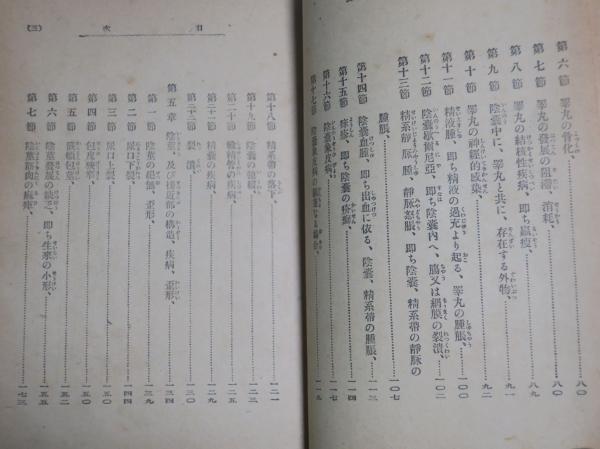 第六節 睾丸の骨化、 八〇
第七節 睾丸の發見の阻滯、消耗、 八〇
第八節 睾丸の結核性疾病、即ち羸瘦、 八九
第九節 陰囊中に、睾丸と共に、存在する外物、 九一
第十節 睾丸の神經的感染、 九二
第十一節 精液腫、即ち精液の過充より起る、睾丸の腫脹、 一〇〇
第十二節 陰囊歇爾尼亞、即ち陰囊內へ、腸又は網膜の裂潰、 一〇二
第十三節 精系靜脈腫、靜脈怒脹、即ち陰囊、精系帶の靜脈の
腫脹、 一〇七
第十四節 陰囊血腫、即ち出血に依る、陰囊、精系帶の腫脹、 一一三
第十五節 痒疹、即ち陰囊の疥癬、 一一四
第十六節 陰囊象皮病、 一一七
第十七節 一一九
目次 (三)
第十八節 精系帶の落下、 一二一
第十九節 陰囊の弛緩、 一二三
第二十節 輸精管の疾病、 一二五
第二十一節 精囊の疾病、 一二九
第二十二節 裂潰、 一三〇
第五章 陰莖、及び接近部の構造、疾病、歪形、 一三四
第一節 陰莖の過強、歪形、 一三九
第二節 尿口下裂、 一四四
第三節 尿口上裂、 一五〇
第四節 包皮痙攣、 一五〇
第五節 嵌頓包莖、 一五二
第六節 陰莖發展の缺乏、即ち生來の小形、 一五五
第七節 陰莖筋肉の麻痺、 一七三